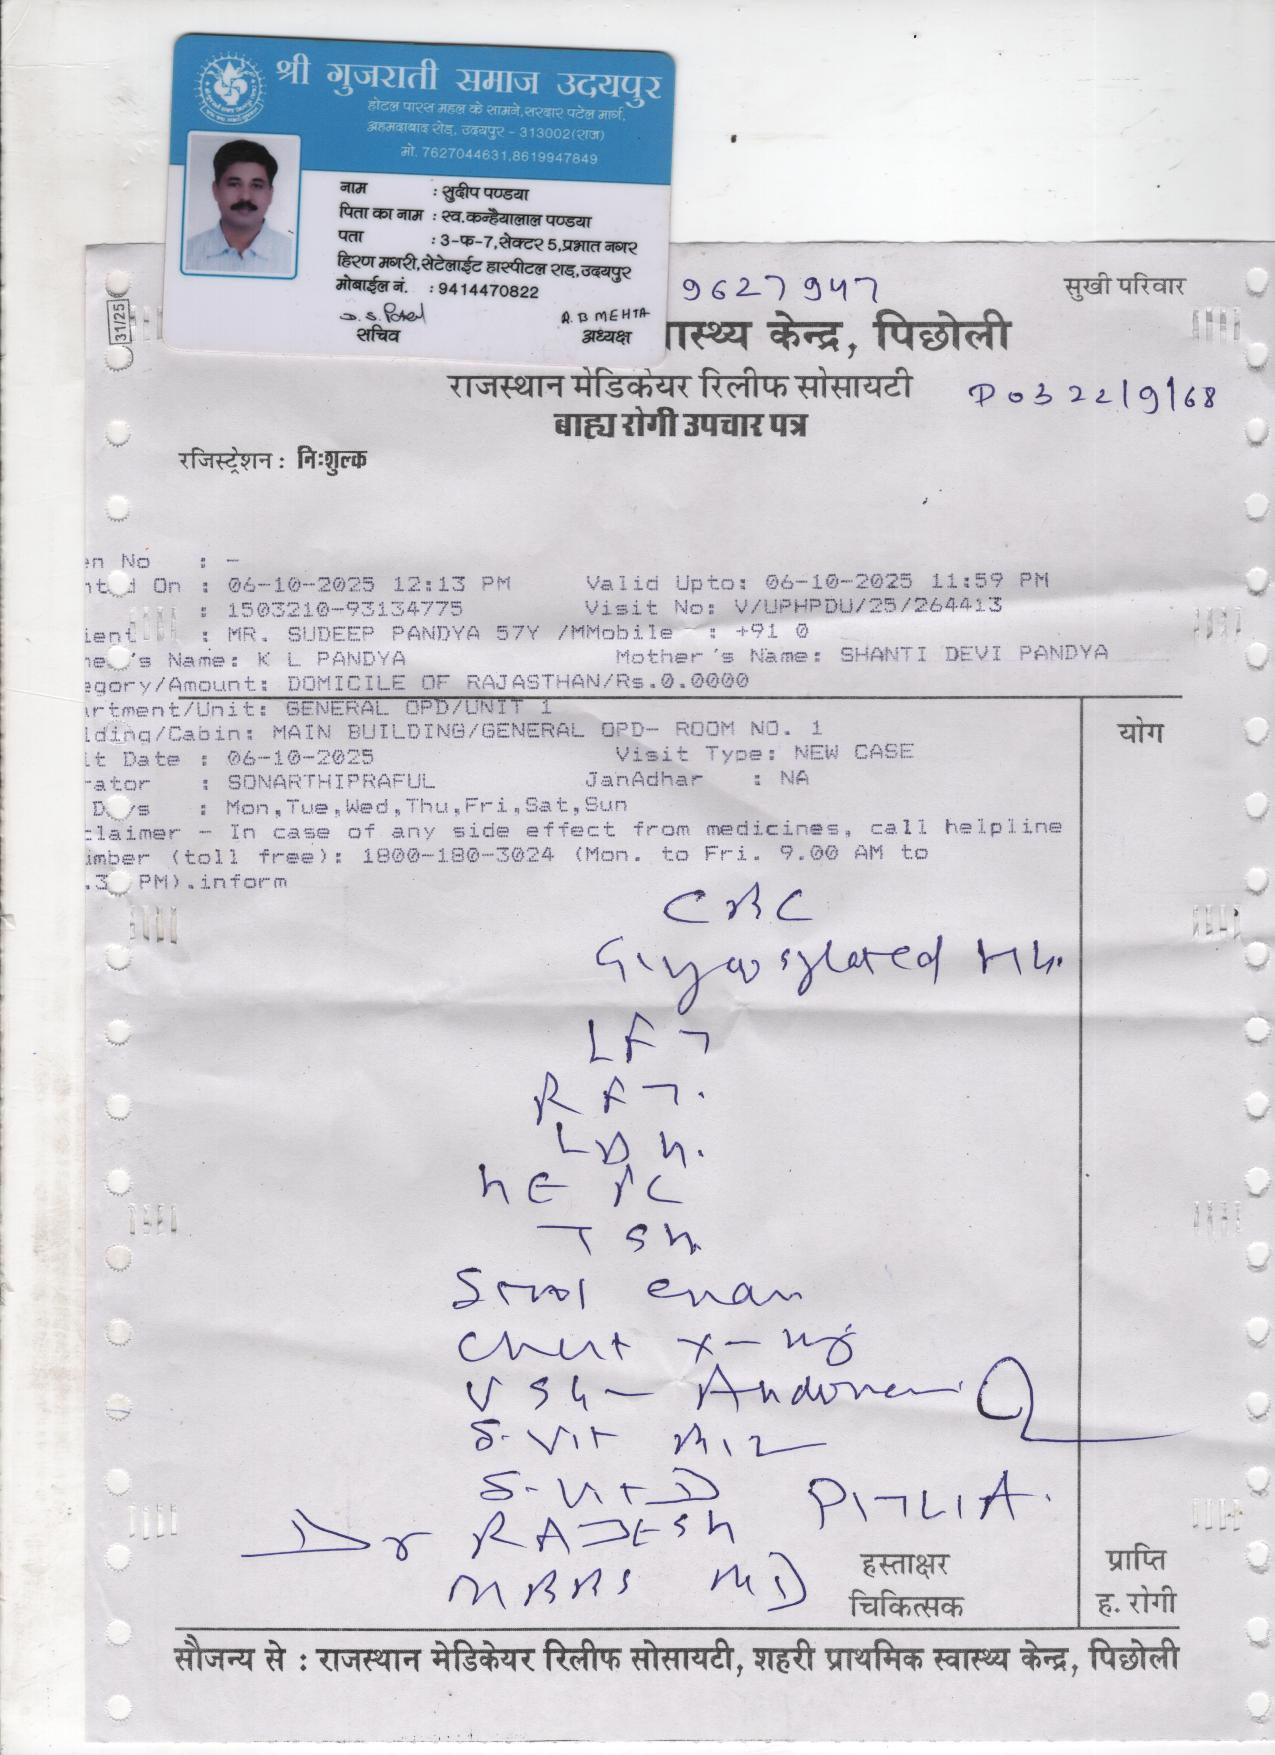 श्री गुजराती समाज उदयपुर
होटल पारस महल के सामने,सरदार पटेल मार्ग,
अहमदाबाद रोड, उदयपुर - 313002(राज)
मो. 7627044631,8619947849
नाम : सुदीप पण्डया
पिता का नाम : स्व.कन्हैयालाल पण्डया
पता : 3-फ-7,सेक्टर 5,प्रभात नगर
हिरण मगरी,सेटेलाईट हास्पीटल राड़,उदयपुर
मोबाईल नं. : 9414470822
D.S. Patel A.B MEHTA
सचिव अध्यक्ष
31/25
9627947 सुखी परिवार
ास्थ्य केन्द्र, पिछोली
राजस्थान मेडिकेयर रिलीफ सोसायटी
DOB 22/9/68
बाह्य रोगी उपचार पत्र
रजिस्ट्रेशन : निःशुल्क
en No : -
nted On : 06-10-2025 12:13 PM Valid Upto: 06-10-2025 11:59 PM
: 1503210-93134775 Visit No: V/UPHPDU/25/264413
ient : MR. SUDEEP PANDYA 57Y /MMobile : +91 0
her's Name: K L PANDYA Mother's Name: SHANTI DEVI PANDYA
egory/Amount: DOMICILE OF RAJASTHAN/Rs.0.0000
artment/Unit: GENERAL OPD/UNIT 1
lding/Cabin: MAIN BUILDING/GENERAL OPD- ROOM NO. 1
योग
it Date : 06-10-2025 Visit Type: NEW CASE
rator : SONARTHIPRAFUL JanAdhar : NA
Days : Mon,Tue,Wed,Thu,Fri,Sat,Sun
claimer - In case of any side effect from medicines, call helpline
umber (toll free): 1800-180-3024 (Mon. to Fri. 9.00 AM to
.3 PM).inform
CBC
Glycosylated Hb.
LFT
RFT.
LDH.
TSH
Stool exam
Chest X-ray
USG- Abdomen
S. Vit B12
S. Vit D
Dr RAJESH PITLIA.
MBBS MD
हस्ताक्षर प्राप्ति
चिकित्सक ह. रोगी
सौजन्य से : राजस्थान मेडिकेयर रिलीफ सोसायटी, शहरी प्राथमिक स्वास्थ्य केन्द्र, पिछोली